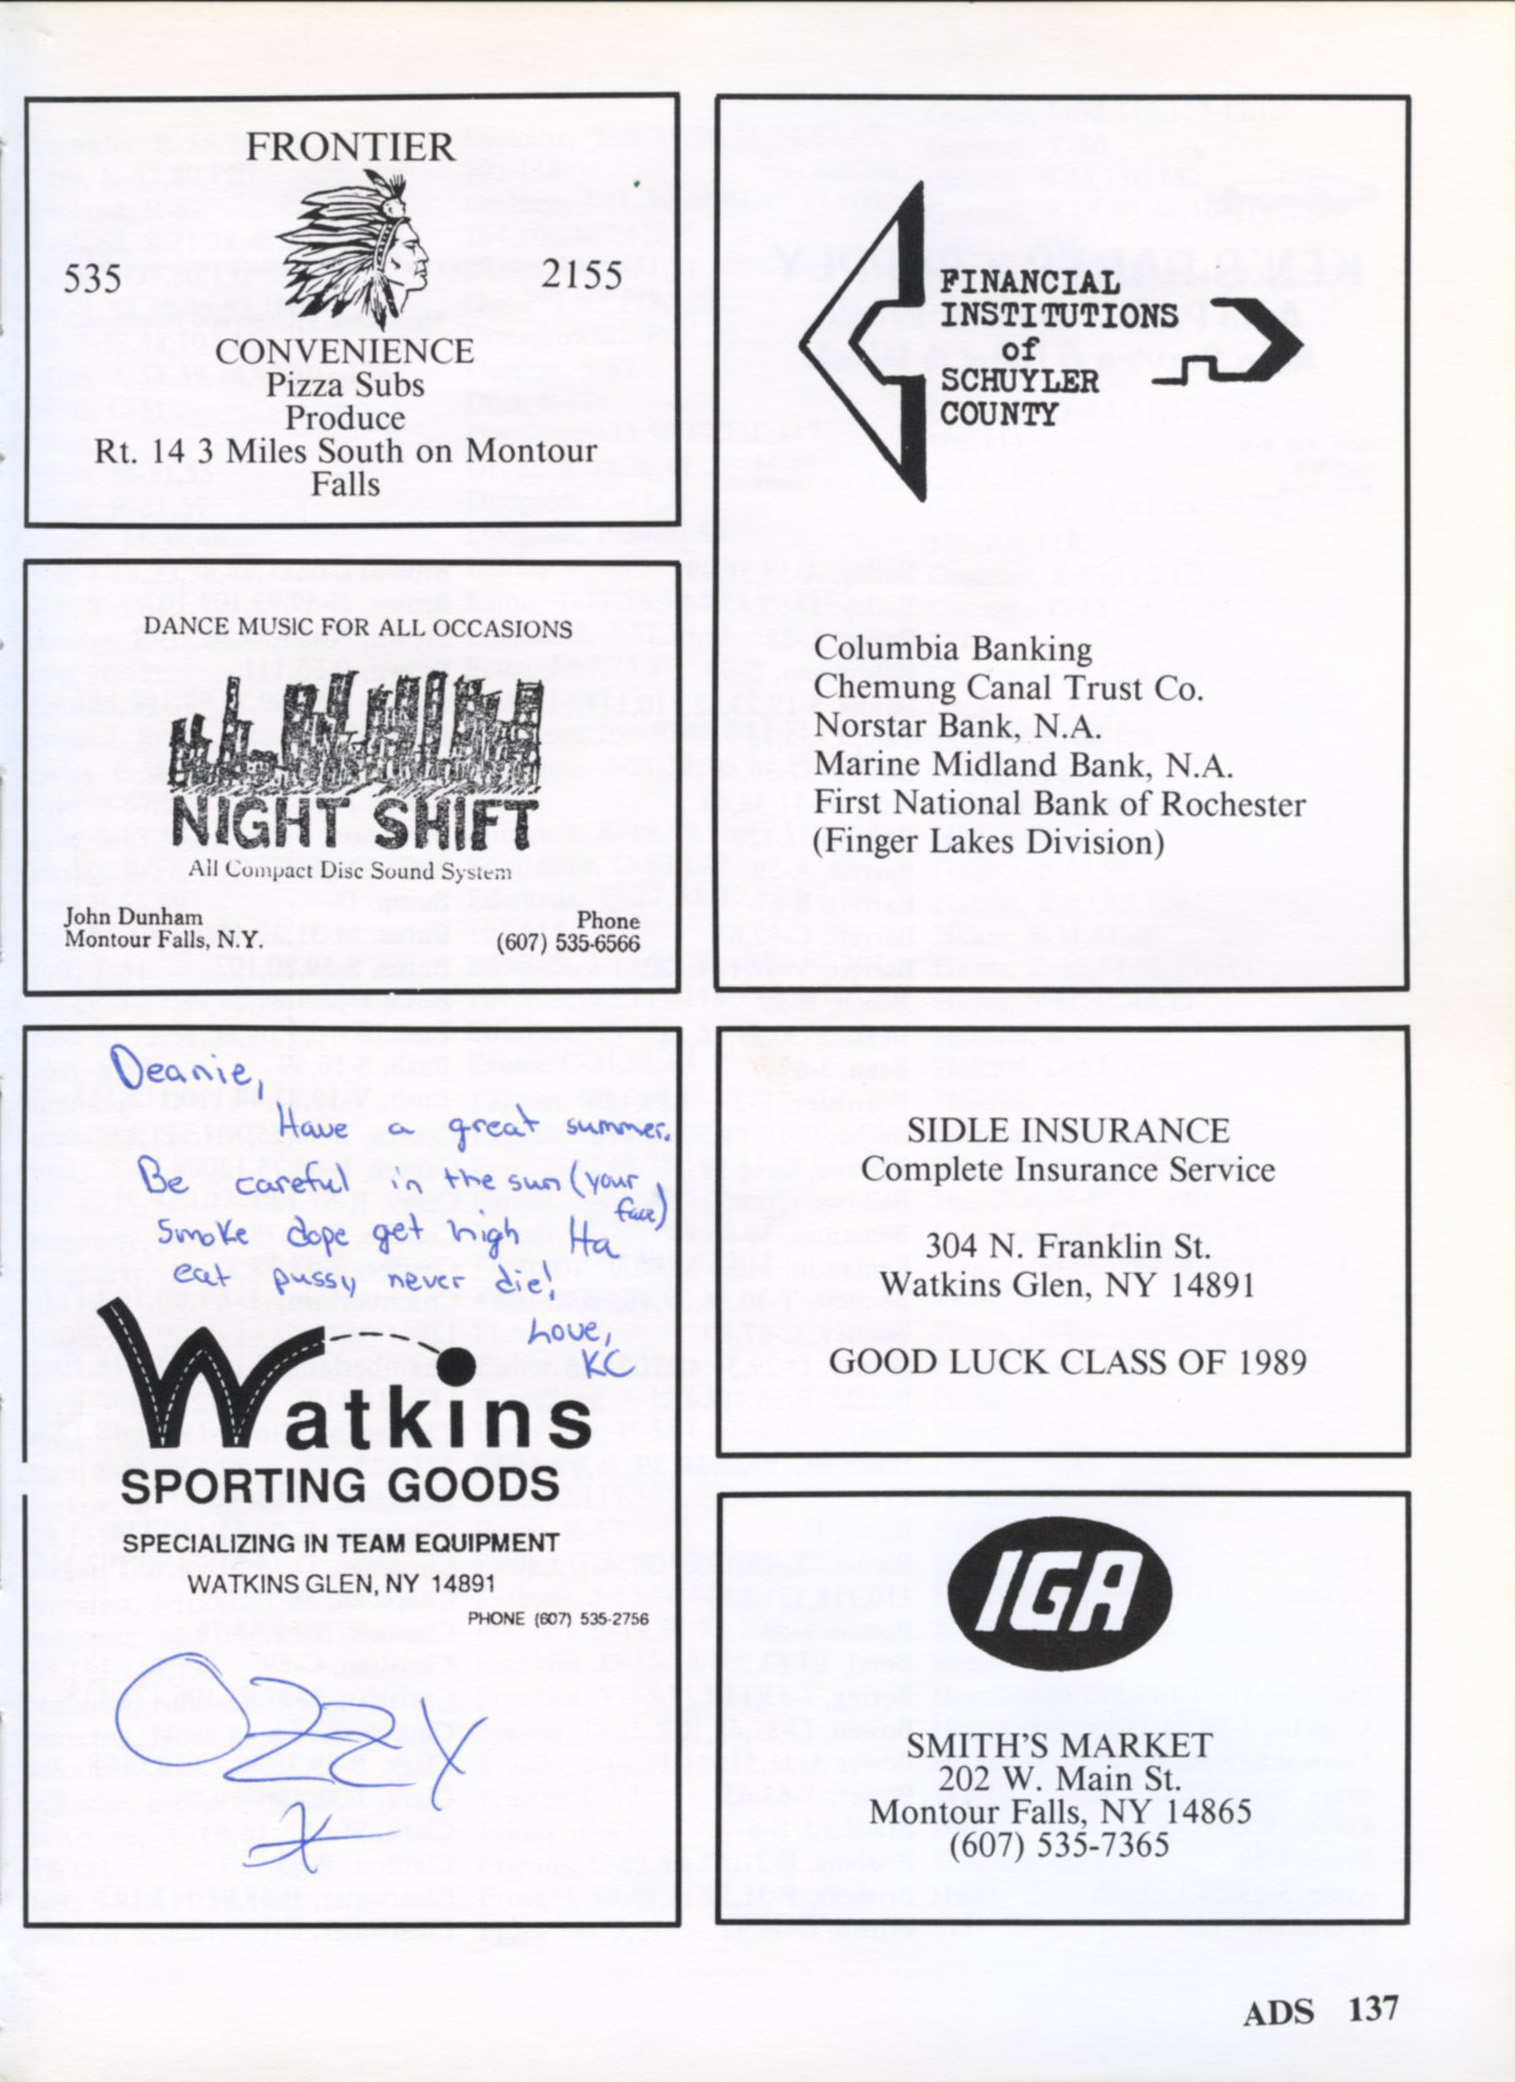 FRONTIER
535 2155
CONVENIENCE
Pizza Subs
Produce
Rt. 14 3 Miles South on Montour
Falls
DANCE MUSIC FOR ALL OCCASIONS
NIGHT SHIFT
All Compact Disc Sound System
John Dunham
Montour Falls, N.Y.
Phone
(607) 535-6566
Deanie,
Have a great summer.
Be careful in the sun (your
face)
Smoke dope get high Ha
eat pussy never die!
Love,
KC
Watkins
SPORTING GOODS
SPECIALIZING IN TEAM EQUIPMENT
WATKINS GLEN, NY 14891
PHONE (607) 535-2756
OZZY
FINANCIAL
INSTITUTIONS
of
SCHUYLER
COUNTY
Columbia Banking
Chemung Canal Trust Co.
Norstar Bank, N.A.
Marine Midland Bank, N.A.
First National Bank of Rochester
(Finger Lakes Division)
SIDLE INSURANCE
Complete Insurance Service
304 N. Franklin St.
Watkins Glen, NY 14891
GOOD LUCK CLASS OF 1989
IGA
SMITH'S MARKET
202 W. Main St.
Montour Falls, NY 14865
(607) 535-7365
ADS 137